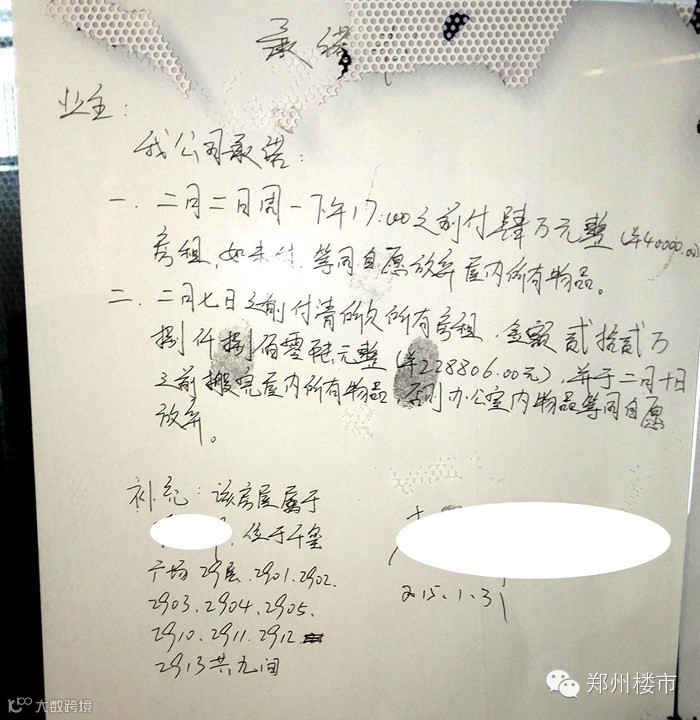 承诺
业主：
我公司承诺：
一．二月二日周一下午17:00之前付肆万元整(¥40000.00)
房租，如未付，等同自愿放弃屋内所有物品。
二．二月七日之前付清所欠所有房租，金额贰拾贰万
捌仟捌佰零陆元整(¥228806.00元)，并于二月十日
之前搬完屋内所有物品，否则办公室内物品等同自愿
放弃。
补充：该房屋属于
，位于千玺
广场29层．2901．2902．
2903．2904．2905．
2910．2911．2912
2913共九间
2015.1.31
郑州楼市
大数跨境